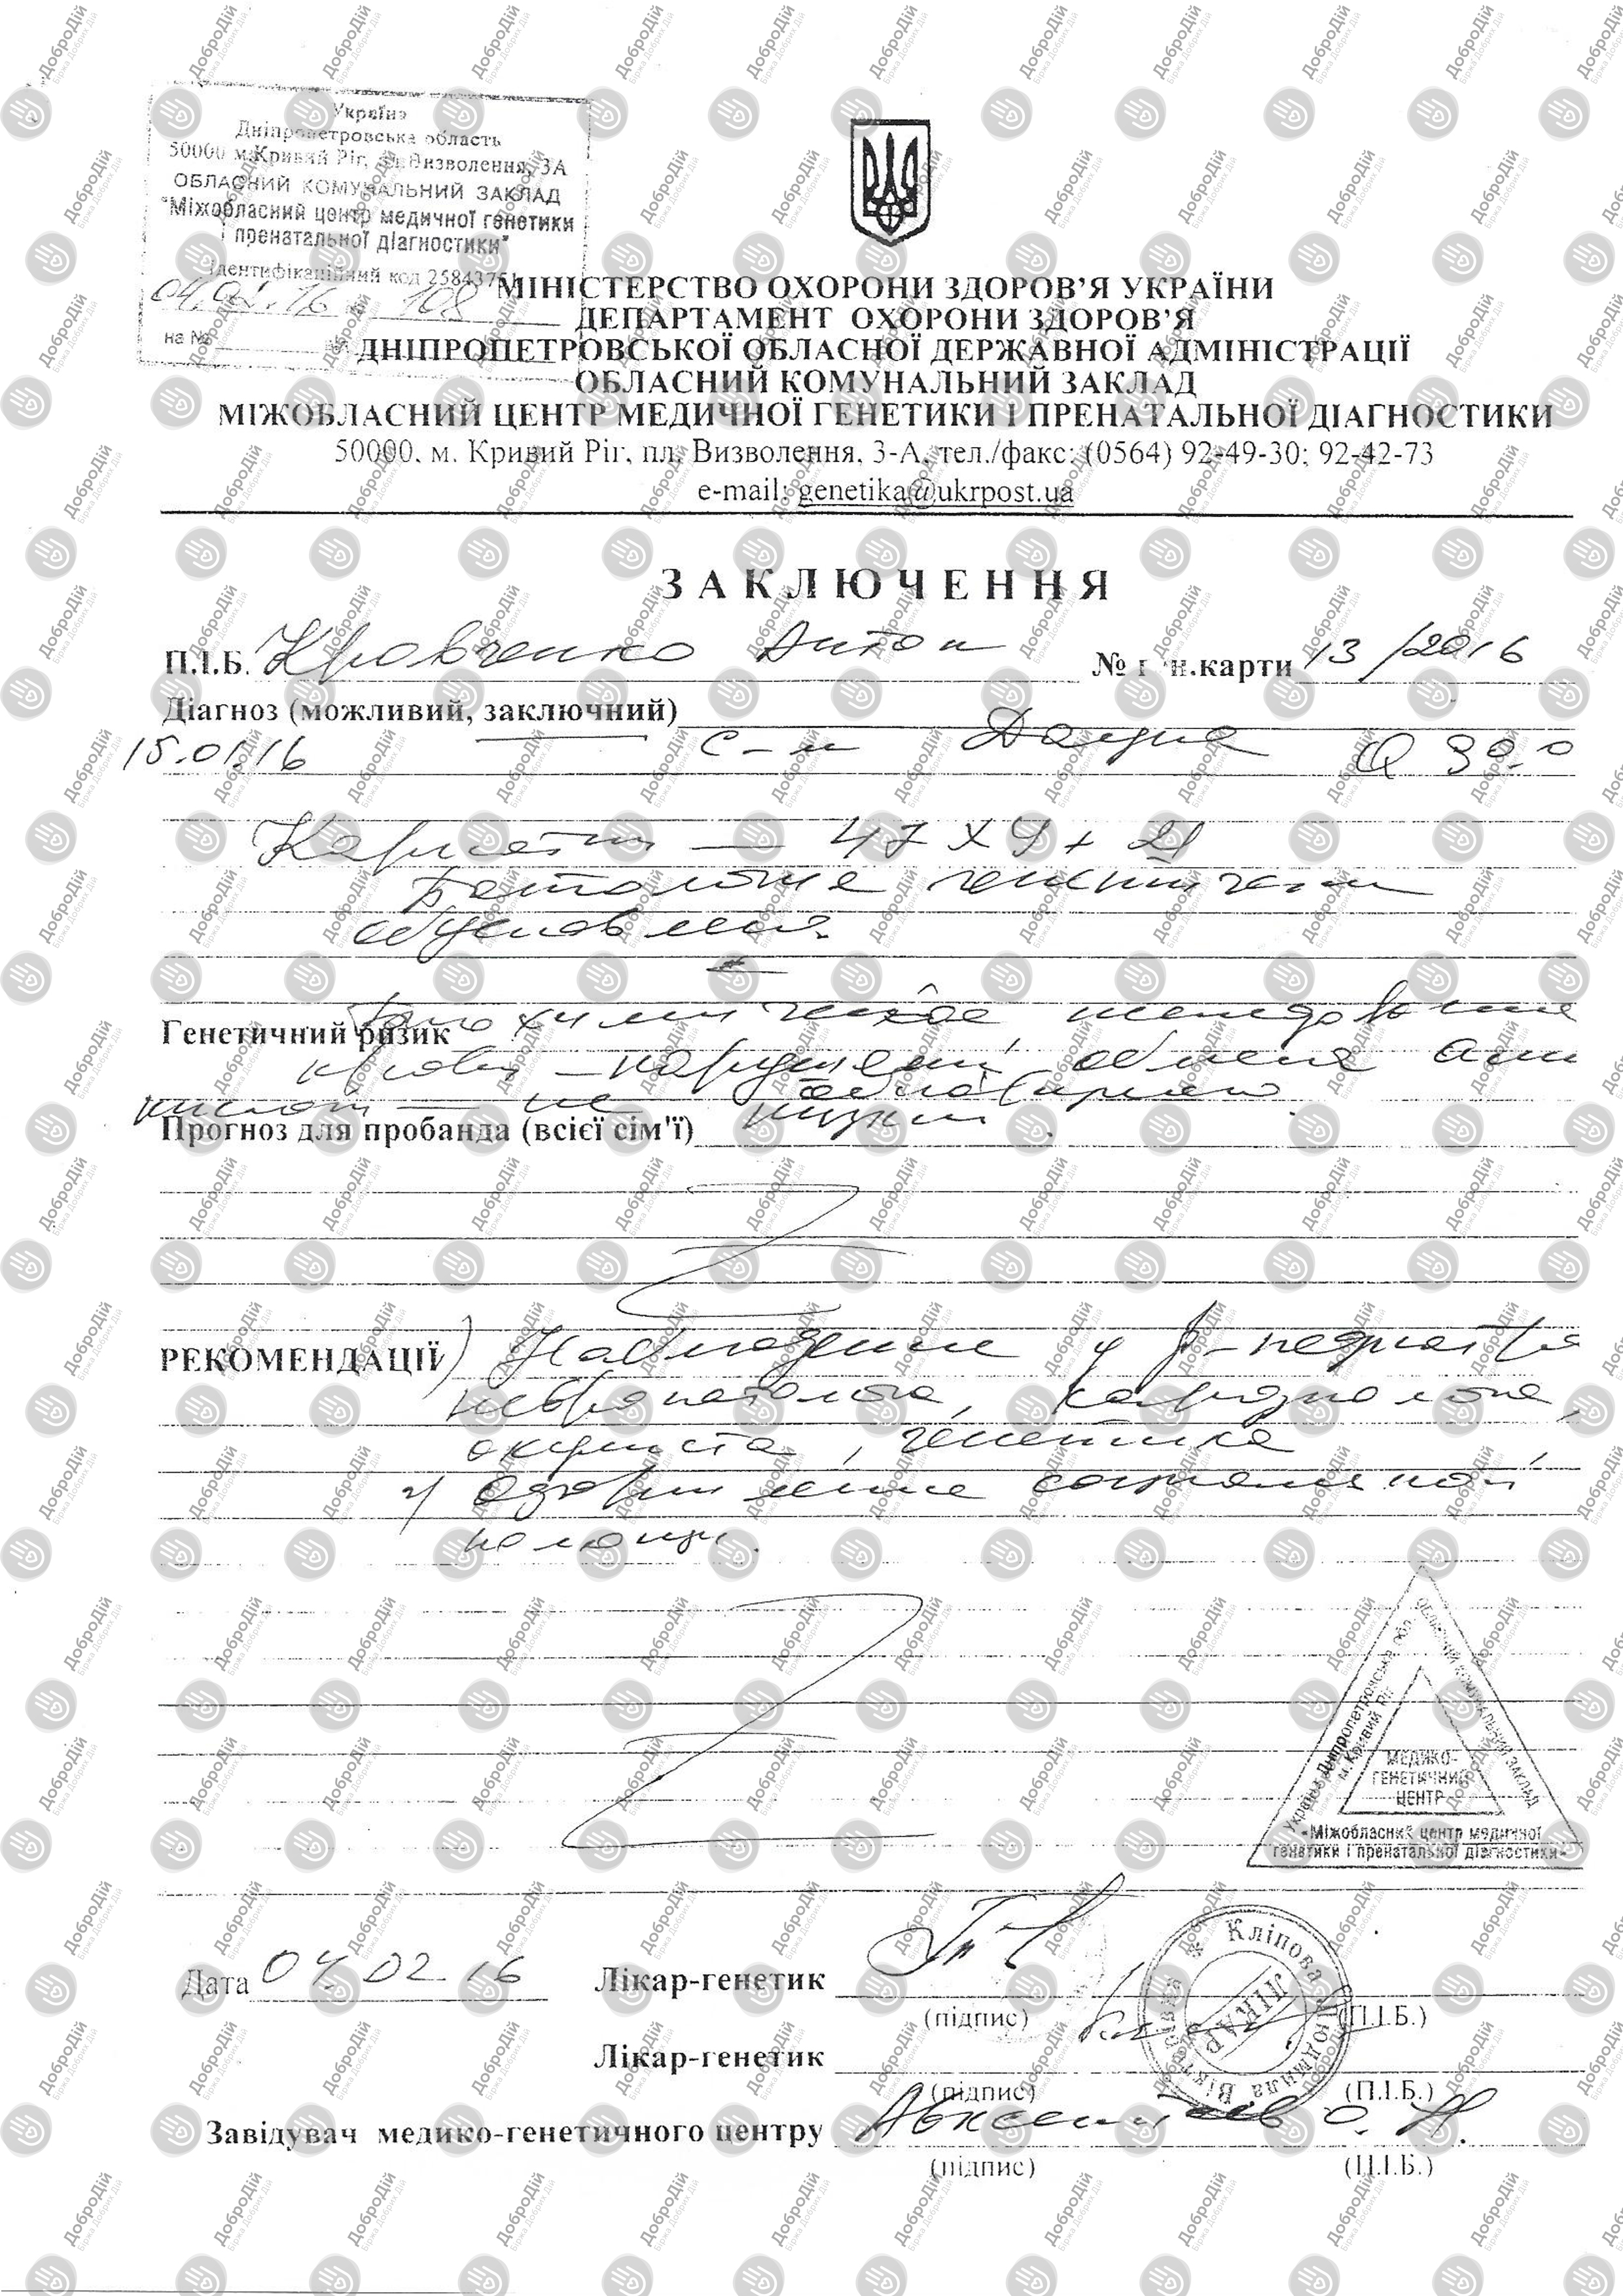 Україна
Дніпропетровська область
50000 м.Кривий Ріг, пл.Визволення, 3А
ОБЛАСНИЙ КОМУНАЛЬНИЙ ЗАКЛАД
"Міжобласний центр медичної генетики
і пренатальної діагностики"
Ідентифікаційний код
04.02.16 108
на №
МІНІСТЕРСТВО ОХОРОНИ ЗДОРОВ’Я УКРАЇНИ
ДЕПАРТАМЕНТ ОХОРОНИ ЗДОРОВ’Я
ДНІПРОПЕТРОВСЬКОЇ ОБЛАСНОЇ ДЕРЖАВНОЇ АДМІНІСТРАЦІЇ
ОБЛАСНИЙ КОМУНАЛЬНИЙ ЗАКЛАД
МІЖОБЛАСНИЙ ЦЕНТР МЕДИЧНОЇ ГЕНЕТИКИ І ПРЕНАТАЛЬНОЇ ДІАГНОСТИКИ
50000, м. Кривий Ріг, пл. Визволення, 3-А, тел./факс: (0564) 92-49-30; 92-42-73
e-mail: genetika@ukrpost.ua
ЗАКЛЮЧЕННЯ
П.І.Б. Кравченко Антон № ген.карти 13/2016
Діагноз (можливий, заключний)
15.01.16 с-м Дауна Q 90.0
Кариотип — 47 XY + 21
Патология генетически
обусловлена.
Генетичний ризик Биохимическое исследование
крови – нарушений обмена амин
кислот — не
Прогноз для пробанда (всієї сім'ї)
РЕКОМЕНДАЦІЇ 1) Наблюдение у педиатра
невропатолога, кардиолога,
окулиста, генетика
2) социальной
помощи.
Україна Дніпропетровська обл.
м. Кривий Ріг
ОБЛАСНИЙ КОМУНАЛЬНИЙ ЗАКЛАД
МЕДИКО-
ГЕНЕТИЧНИЙ
ЦЕНТР
«Міжобласний центр медичної
генетики і пренатальної діагностики»
Дата 04.02.16 Лікар-генетик
(підпис) (П.І.Б.)
Кліпова Людмила Вікторівна
ЛІКАР
Лікар-генетик
(підпис) (П.І.Б.)
Завідувач медико-генетичного центру
(підпис) (П.І.Б.)
ДоброДій
Біржа Добрих Дій